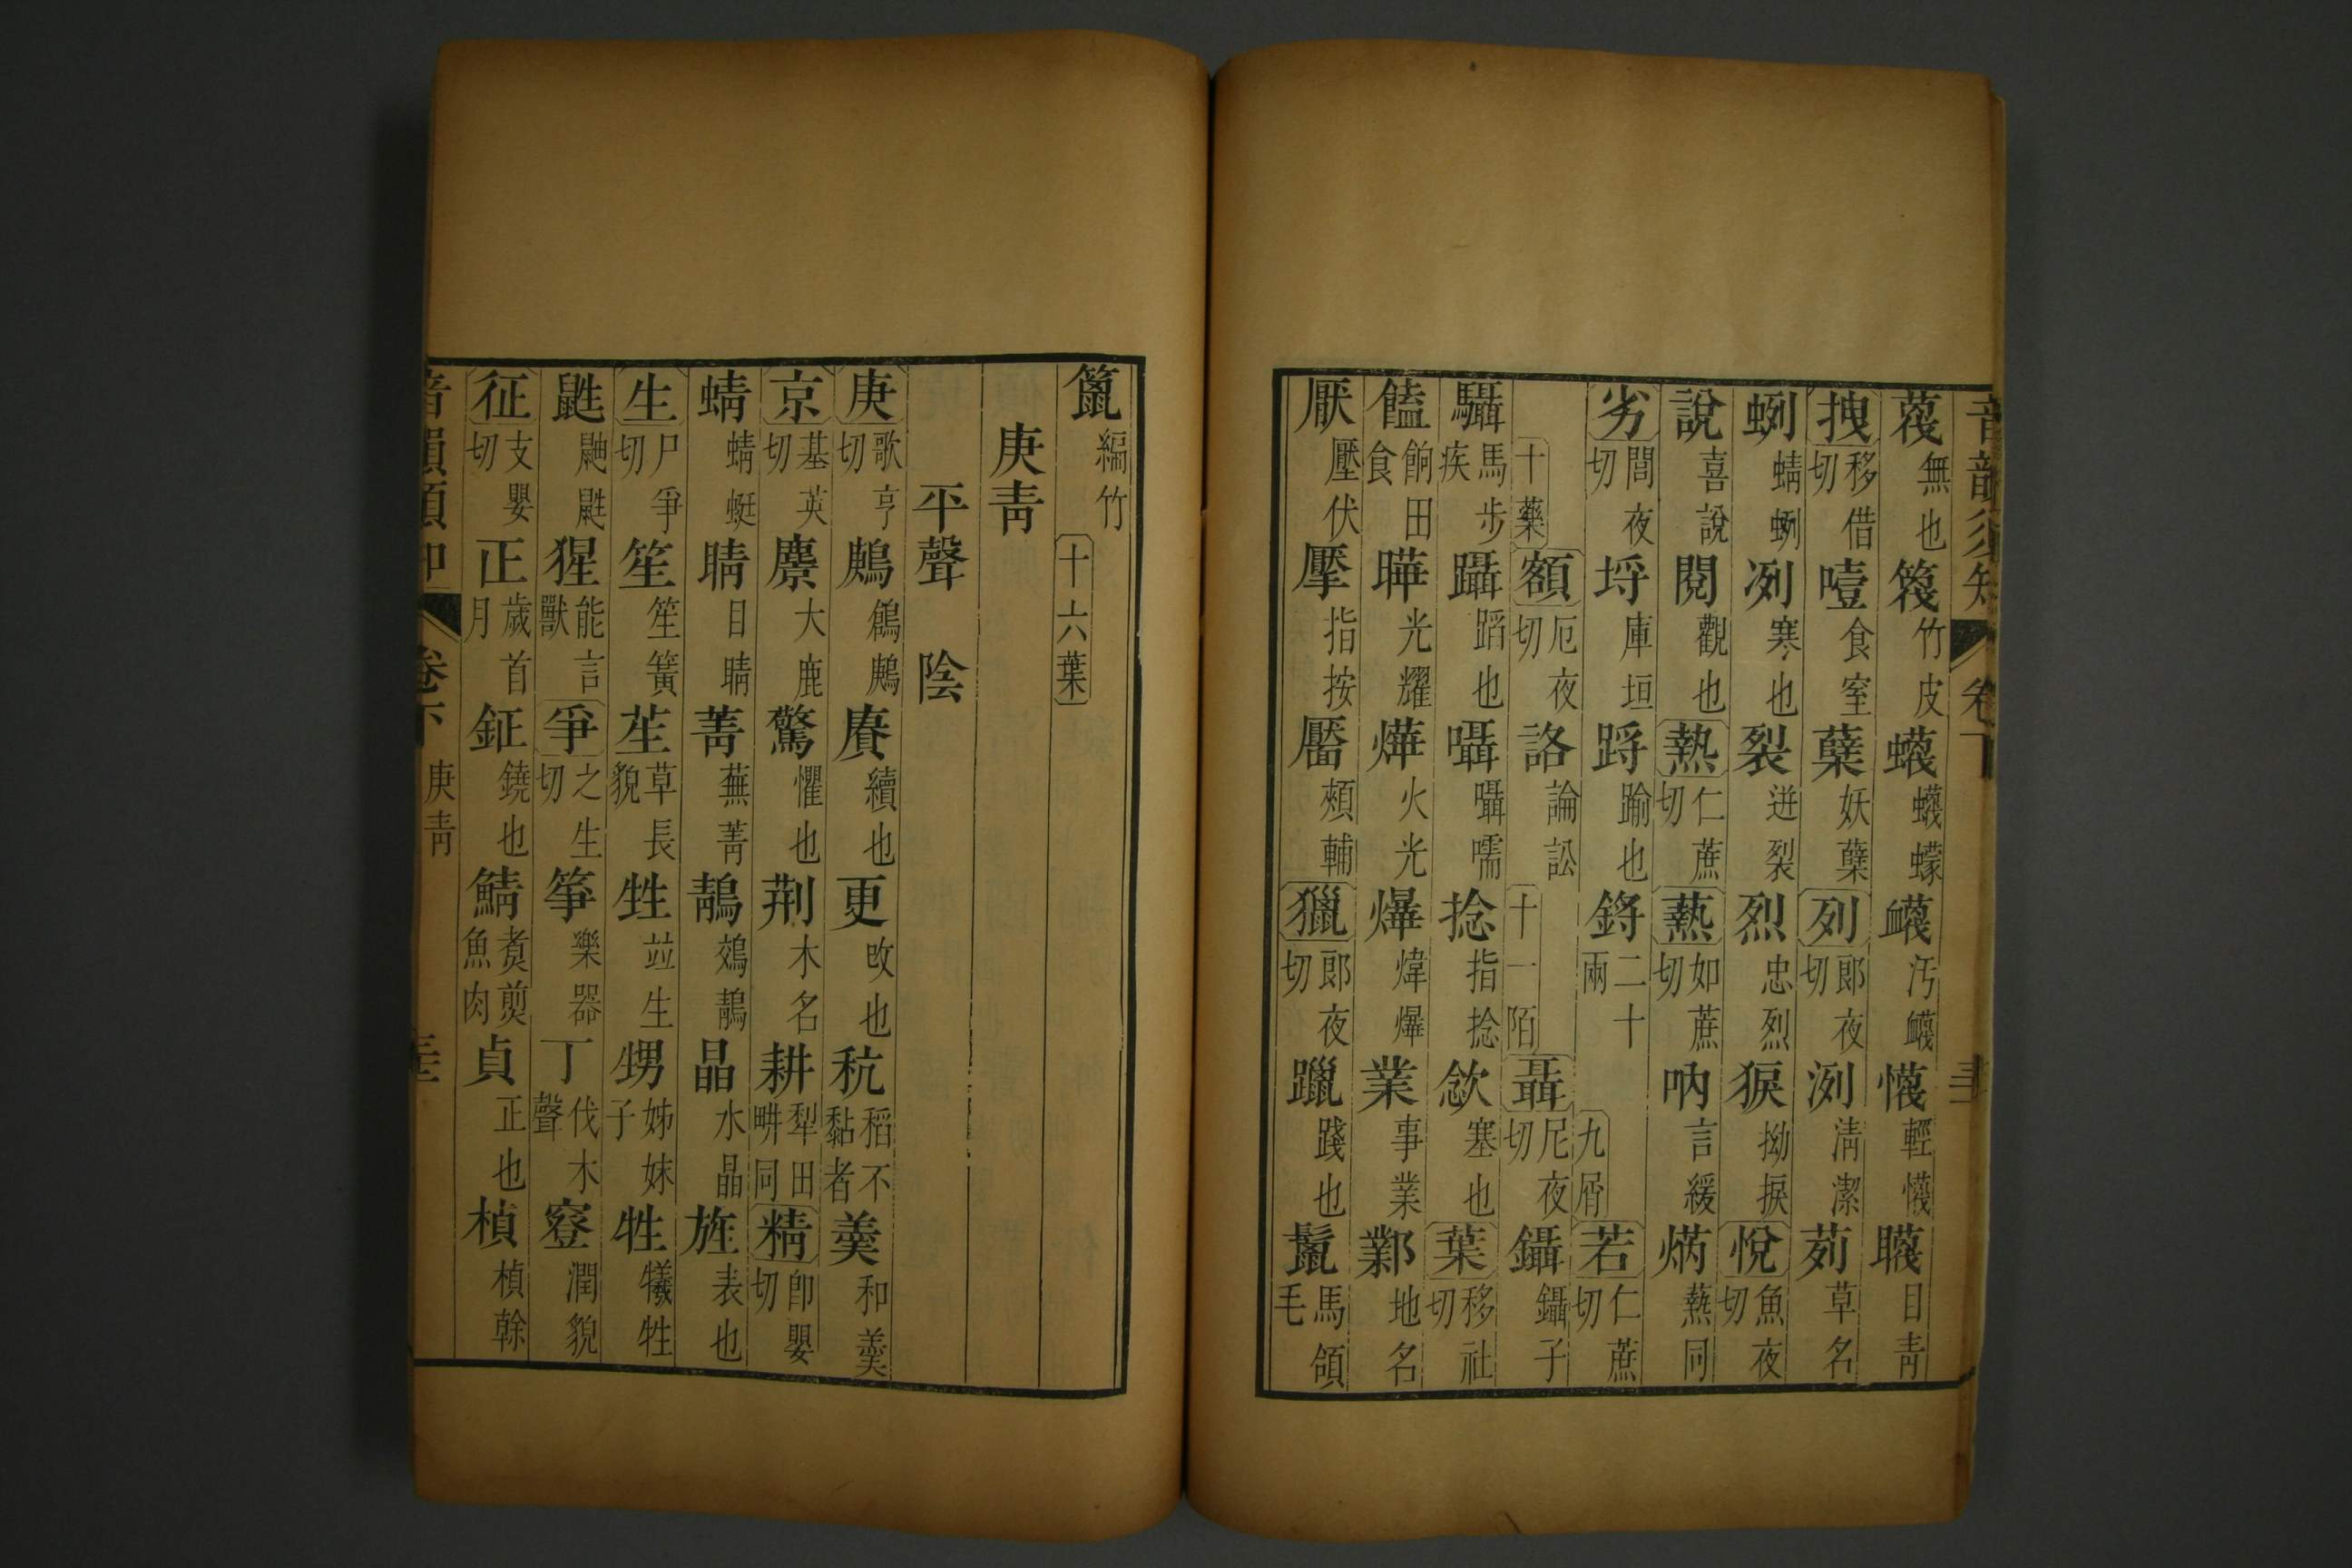 音韻須知 卷下
蔑無也篾竹皮蠛蠛蠓衊汚衊懱輕懱瞜目青
拽移借切噎食窒蘖妖蘖列郞夜切洌清潔茢草名
蛚蜻蛚冽寒也裂迸裂烈忠烈猰拗捩悅魚夜切
說喜說閱觀也熱仁蔗切爇如蔗切吶言緩焫爇同
劣閭夜切埒庫垣踤踰也鋝二十兩九屑若仁蔗切
十藥額厄夜切詻論訟十一陌聶尼夜切鑷鑷子
驦馬步疾躡蹈也囁囁嚅捻指捻敜塞也葉移社切
饁餉田食曄光耀燁火光爗煒爗業事業鄴地名
厭壓伏擪指按靨頰輔獵郞夜切躐踐也鬣馬領毛
䉭編竹 十六葉
庚靑
平聲 陰
庚歌亨切鶊鶬鶊賡續也更改也秔稻不黏者羹和羹
京基英切麖大鹿驚懼也荆木名耕犁田畊同精卽嬰切
蜻蜻蜓睛目睛菁蕪菁鶄鵁鶄晶水晶旌表也
生尸爭切笙笙簧苼草長貌甡竝生甥姊妹子牲犧牲
鼪鼬鼪猩能言獸爭之生切箏樂器丁伐木聲窒潤貌
征支嬰切正歲首月鉦鐃也鯖煑煎魚肉貞正也楨楨榦
音韻須知 卷下 庚靑